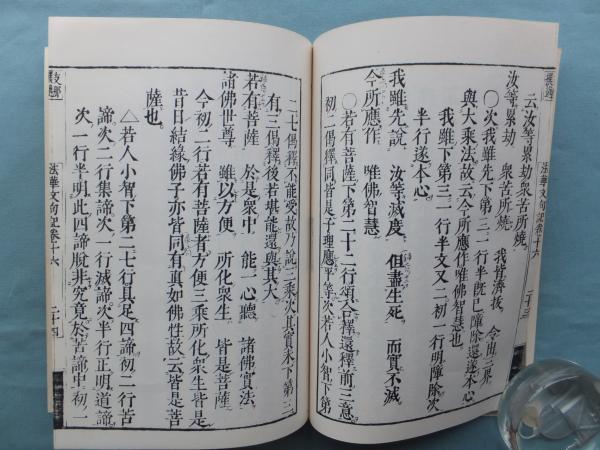 云汝等累劫衆苦所燒。
汝等累劫 衆苦所燒 我皆濟拔 令出三界
○次我雖先下第三一行半旣已陣除還遂本心
與大乘法故云今所應作唯佛智慧也
我雖下第三一行半文又二初一行明陣除次
半行遂本心
我雖先說 汝等滅度 但盡生死 而實不滅
今所應作 唯佛智慧
○若有菩薩下第二十二行頌合釋還釋前三意
初二偈釋同皆是子理應平等次若人小智下第
二七偈釋不能受故乃說三乘次其實未下第三
有三偈釋後若堪能還與其大
若有菩薩 於是衆中 能一心聽 諸佛實法
諸佛世尊 雖以方便 所化衆生 皆是菩薩
今初二行若有菩薩者方便三乘所化衆生皆是
昔日結緣佛子亦皆同有眞如佛性故云皆是菩
薩也。
△若人小智下第二七行具足四諦初二行苦
諦次二行集諦次一行滅諦次半行正明道諦
次一行半明此四諦脫非究竟於苦諦中初一
法華文句記卷十六
二十三
法華文句記卷十六
二十四